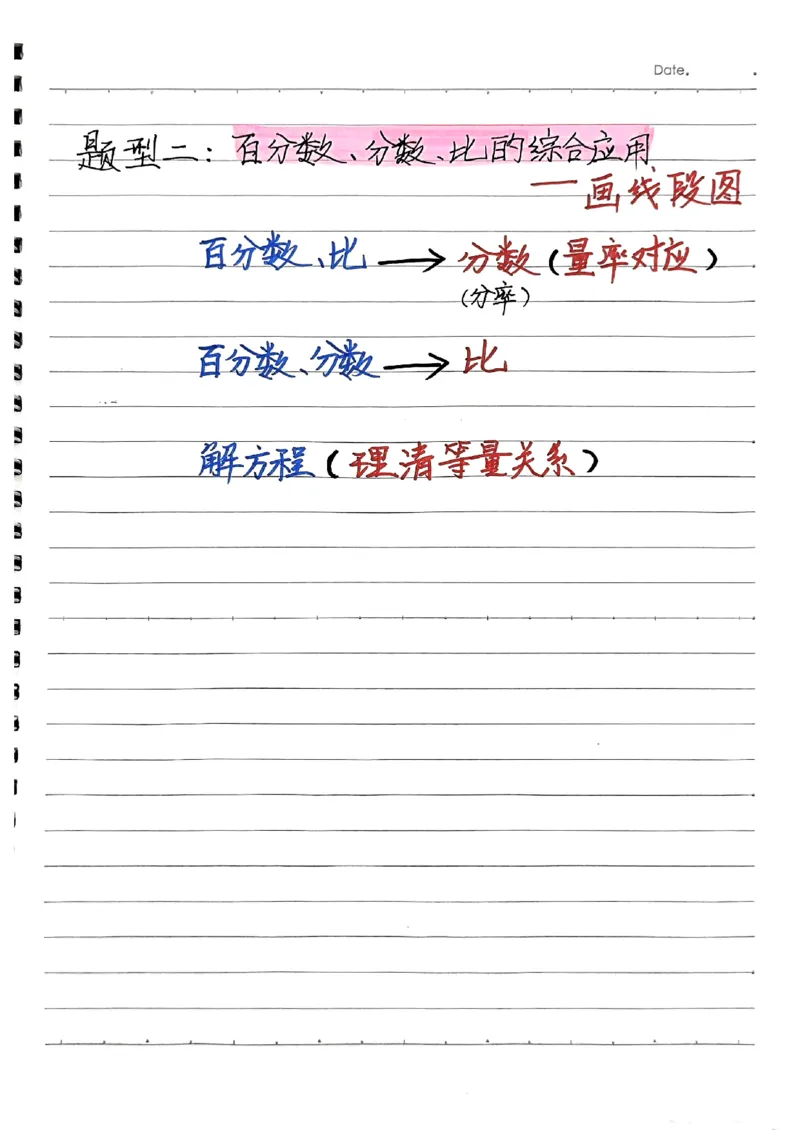 Date.
题型二：百分数、分数、比的综合应用
一画线段图
百分数、比→分数(量率对应)
(分率)
百分数、分数→比
解方程(理清等量关系)